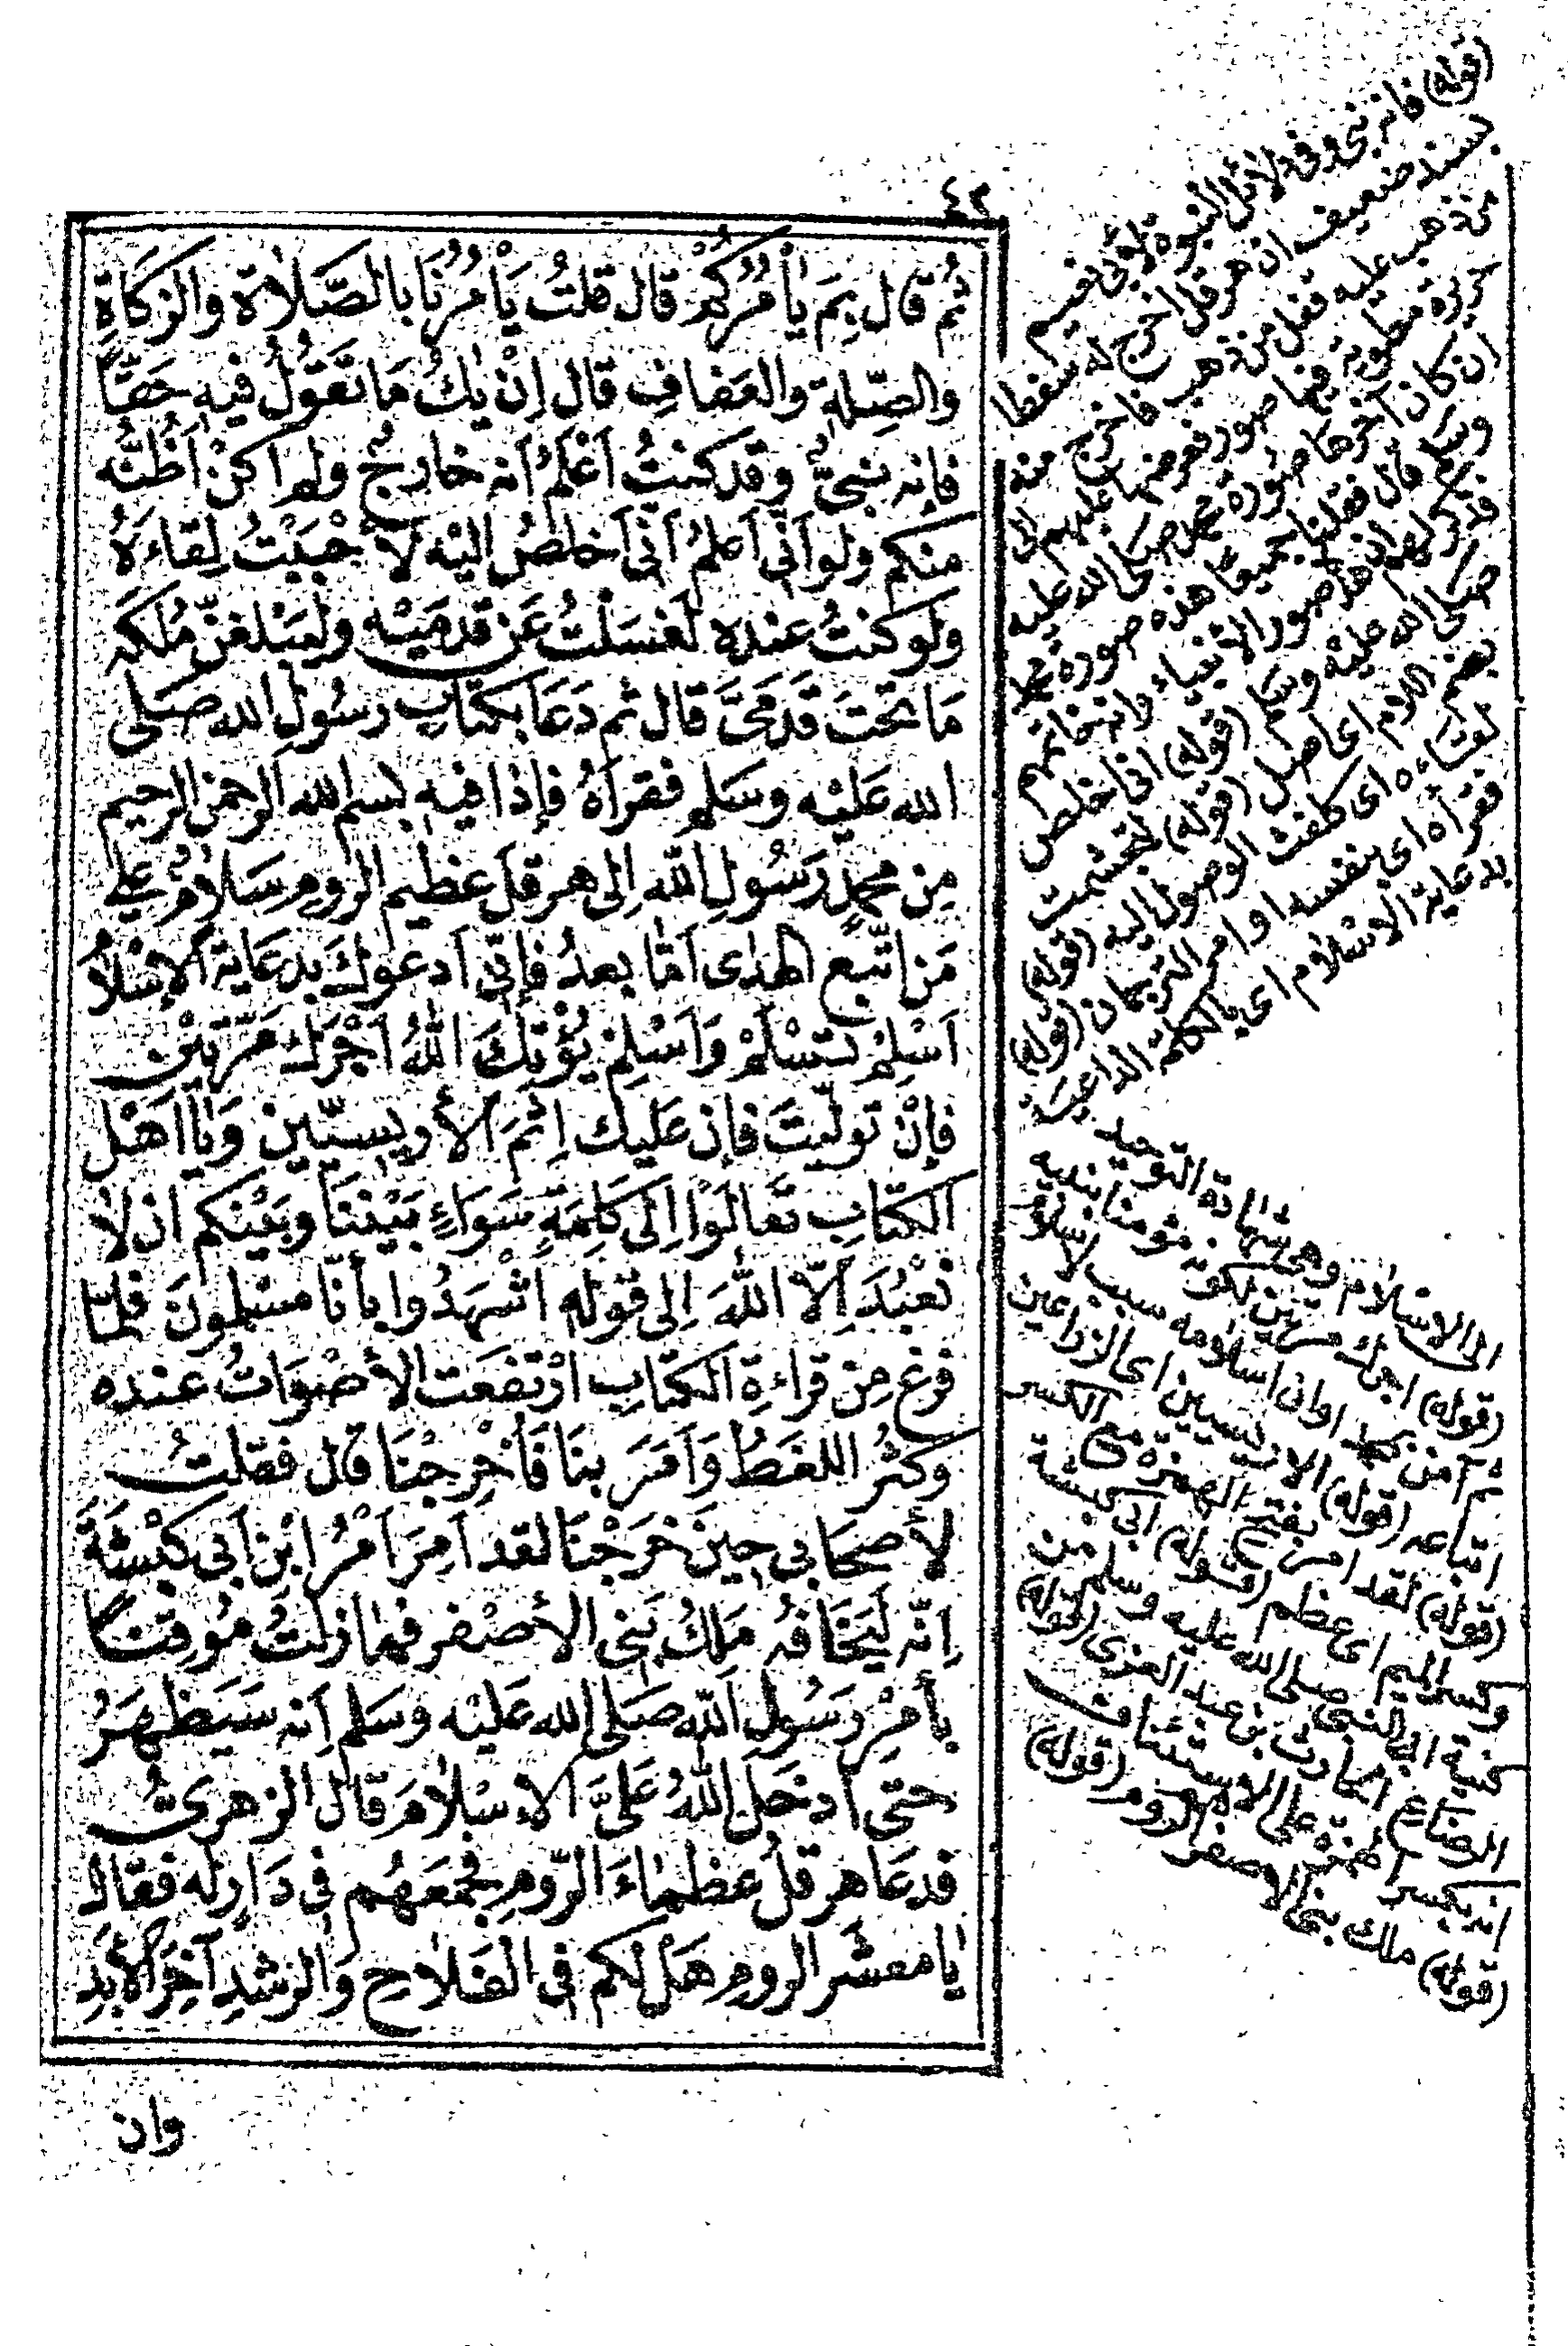 ٤٢
ثُمَّ قال بِمَ يَأْمُرُكُمْ قال قلتُ يَأْمُرُنَا بالصَّلاة والزكاةِ
والصِّلةِ والعفافِ قال اِنْ يكُ مَا تَقُولُ فيه حَقّاً
فإنه نبىٌّ وقد كنتُ اَعْلَمُ اَنه خارجٌ ولم اكنْ اَظُنُّه
منكم ولو اَنّى اَعلمُ اَنى اَخلصُ اليْه لَأَحْبَبْتُ لِقاءَهُ
ولو كنتُ عنده لَغسَلْتُ عَن قدمَيْه وليَبْلغنّ مُلكَه
مَا تحتَ قدَمَىَّ قال ثم دَعَا بكتاب رسُولِ الله صَلى
الله عَليْه وسَلم فقرأهُ فإذا فيه بسم الله الرحمن الرحيم
مِن محمدٍ رَسُولِ اللّه اِلى هرقلَ عظيم الروم سَلامٌ على
مَن اتّبع الهدى اَمّا بعدُ فإنّى اَدعوكَ بدعَاية الإسْلام
اَسْلِمْ تسْلَمْ وَاَسْلِمْ يُؤتِكَ اللّهُ اَجْرَكَ مَرّتيْن
فإنْ توليتَ فإن عَليك اِثمَ الأريسيّين وَيا اَهْل
الكتاب تَعالَوْا اِلى كَلِمَةٍ سَوَاءٍ بَيْننَا وبَيْنكم ان لا
نعْبُدَ اِلّا اللّهَ اِلى قوله اشْهَدُوا بأنّا مسْلمونَ فلمّا
فرغ مِن قراءةِ الكتاب ارْتفعَت الأصْوَاتُ عنده
وكثُر اللغَطُ وَاَمَرَ بنَا فَأُخْرِجْنَا قال فقلتُ
لأصحَابى حِينَ خرَجْنَا لقد اَمِرَ اَمْرُ ابْن اَبى كبْشَةَ
اِنّه ليَخَافُه مَلكُ بَنى الأصْفر فما زلتُ مُوقناً
بأمْرِ رَسُولِ اللّه صَلى الله عَليْه وسَلم اَنه سَيَظهَرُ
حتى اَدخلَ اللّهُ عَلىَّ الاسْلامَ قال الزهرىُّ
فدعَا هرقلُ عظماءَ الرّومِ فجمَعَهُم فى دَارٍ له فقال
يا معشَر الروم هَلْ لكم فى الفَلاحِ وَالرشدِ آخِرَ الأبَدِ
وان
(قوله) فانه نبى وفى دلائل النبوة لابى نعيم
بسند ضعيف ان هرقل اخرج له سفطا
من ذهب عليه قفل من ذهب فاخرج منه
حريرة مطوية فيها صور فعرضها عليهم الى
ان كان آخرها صورة محمد صلى الله عليه
وسلم قال فقلنا جميعا هذه صورة محمد
فذكر لهم ان هذه صور الانبياء وانه خاتمهم
صلى الله عليه وسلم (قوله) انى اخلص
بضم اللام اى اصل (قوله) لتجشمت
لقاءه اى كلفت الوصول اليه (قوله)
فقرأه اى بنفسه او امر الترجمان (قوله)
بدعاية الاسلام اى بالكلمة الداعية
الى الاسلام وهى شهادة التوحيد
(قوله) اجرك مرتين لكونه مؤمنا بنبيه
ثم آمن بمحمد او ان اسلامه سبب لاسلام
اتباعه (قوله) الاريسيين اى الزراعين
(قوله) لقد امر بفتح الهمزة مع الكسر
وكسر الميم اى عظم (قوله) ابى كبشة
كنية ابى النبى صلى الله عليه وسلم من
الرضاع الحارث بن عبد العزى (قوله)
انه بكسر الهمزة على الاستئناف
(قوله) ملك بنى الاصفر الروم (قوله)